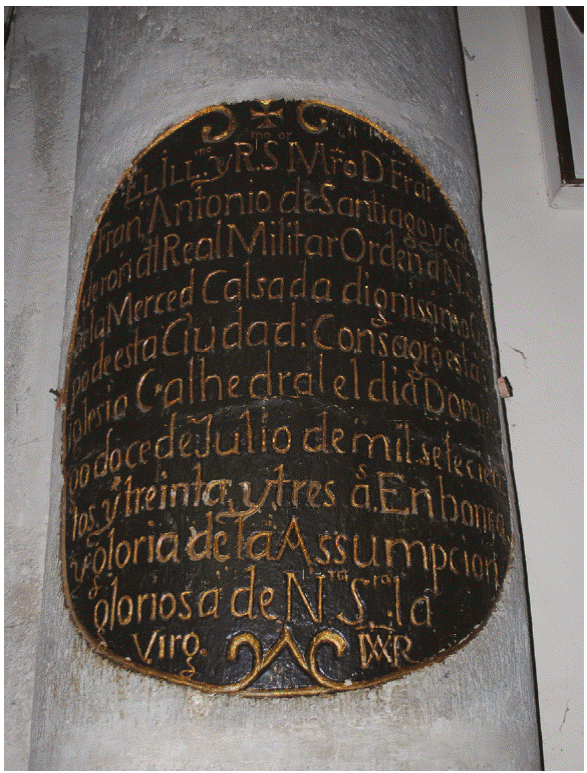 EL ILL.mo y R.S Mro D Frai
Fran.co Antonio de Santiago y Cal
deron dl Real Militar Orden d N. S
de la Merced Calsada dignissimo O
po de esta Ciudad: Consagrô esta
Iglesia Cathedral el dia Domin
go doce de Julio de mil setecien
tos, y treinta, y tres a.s En honra
y gloria de la Assumpcion
gloriosa de N.ra S.ra la
Virg.